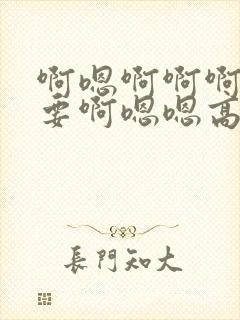 啊嗯啊啊啊
要啊嗯嗯高
長門知大